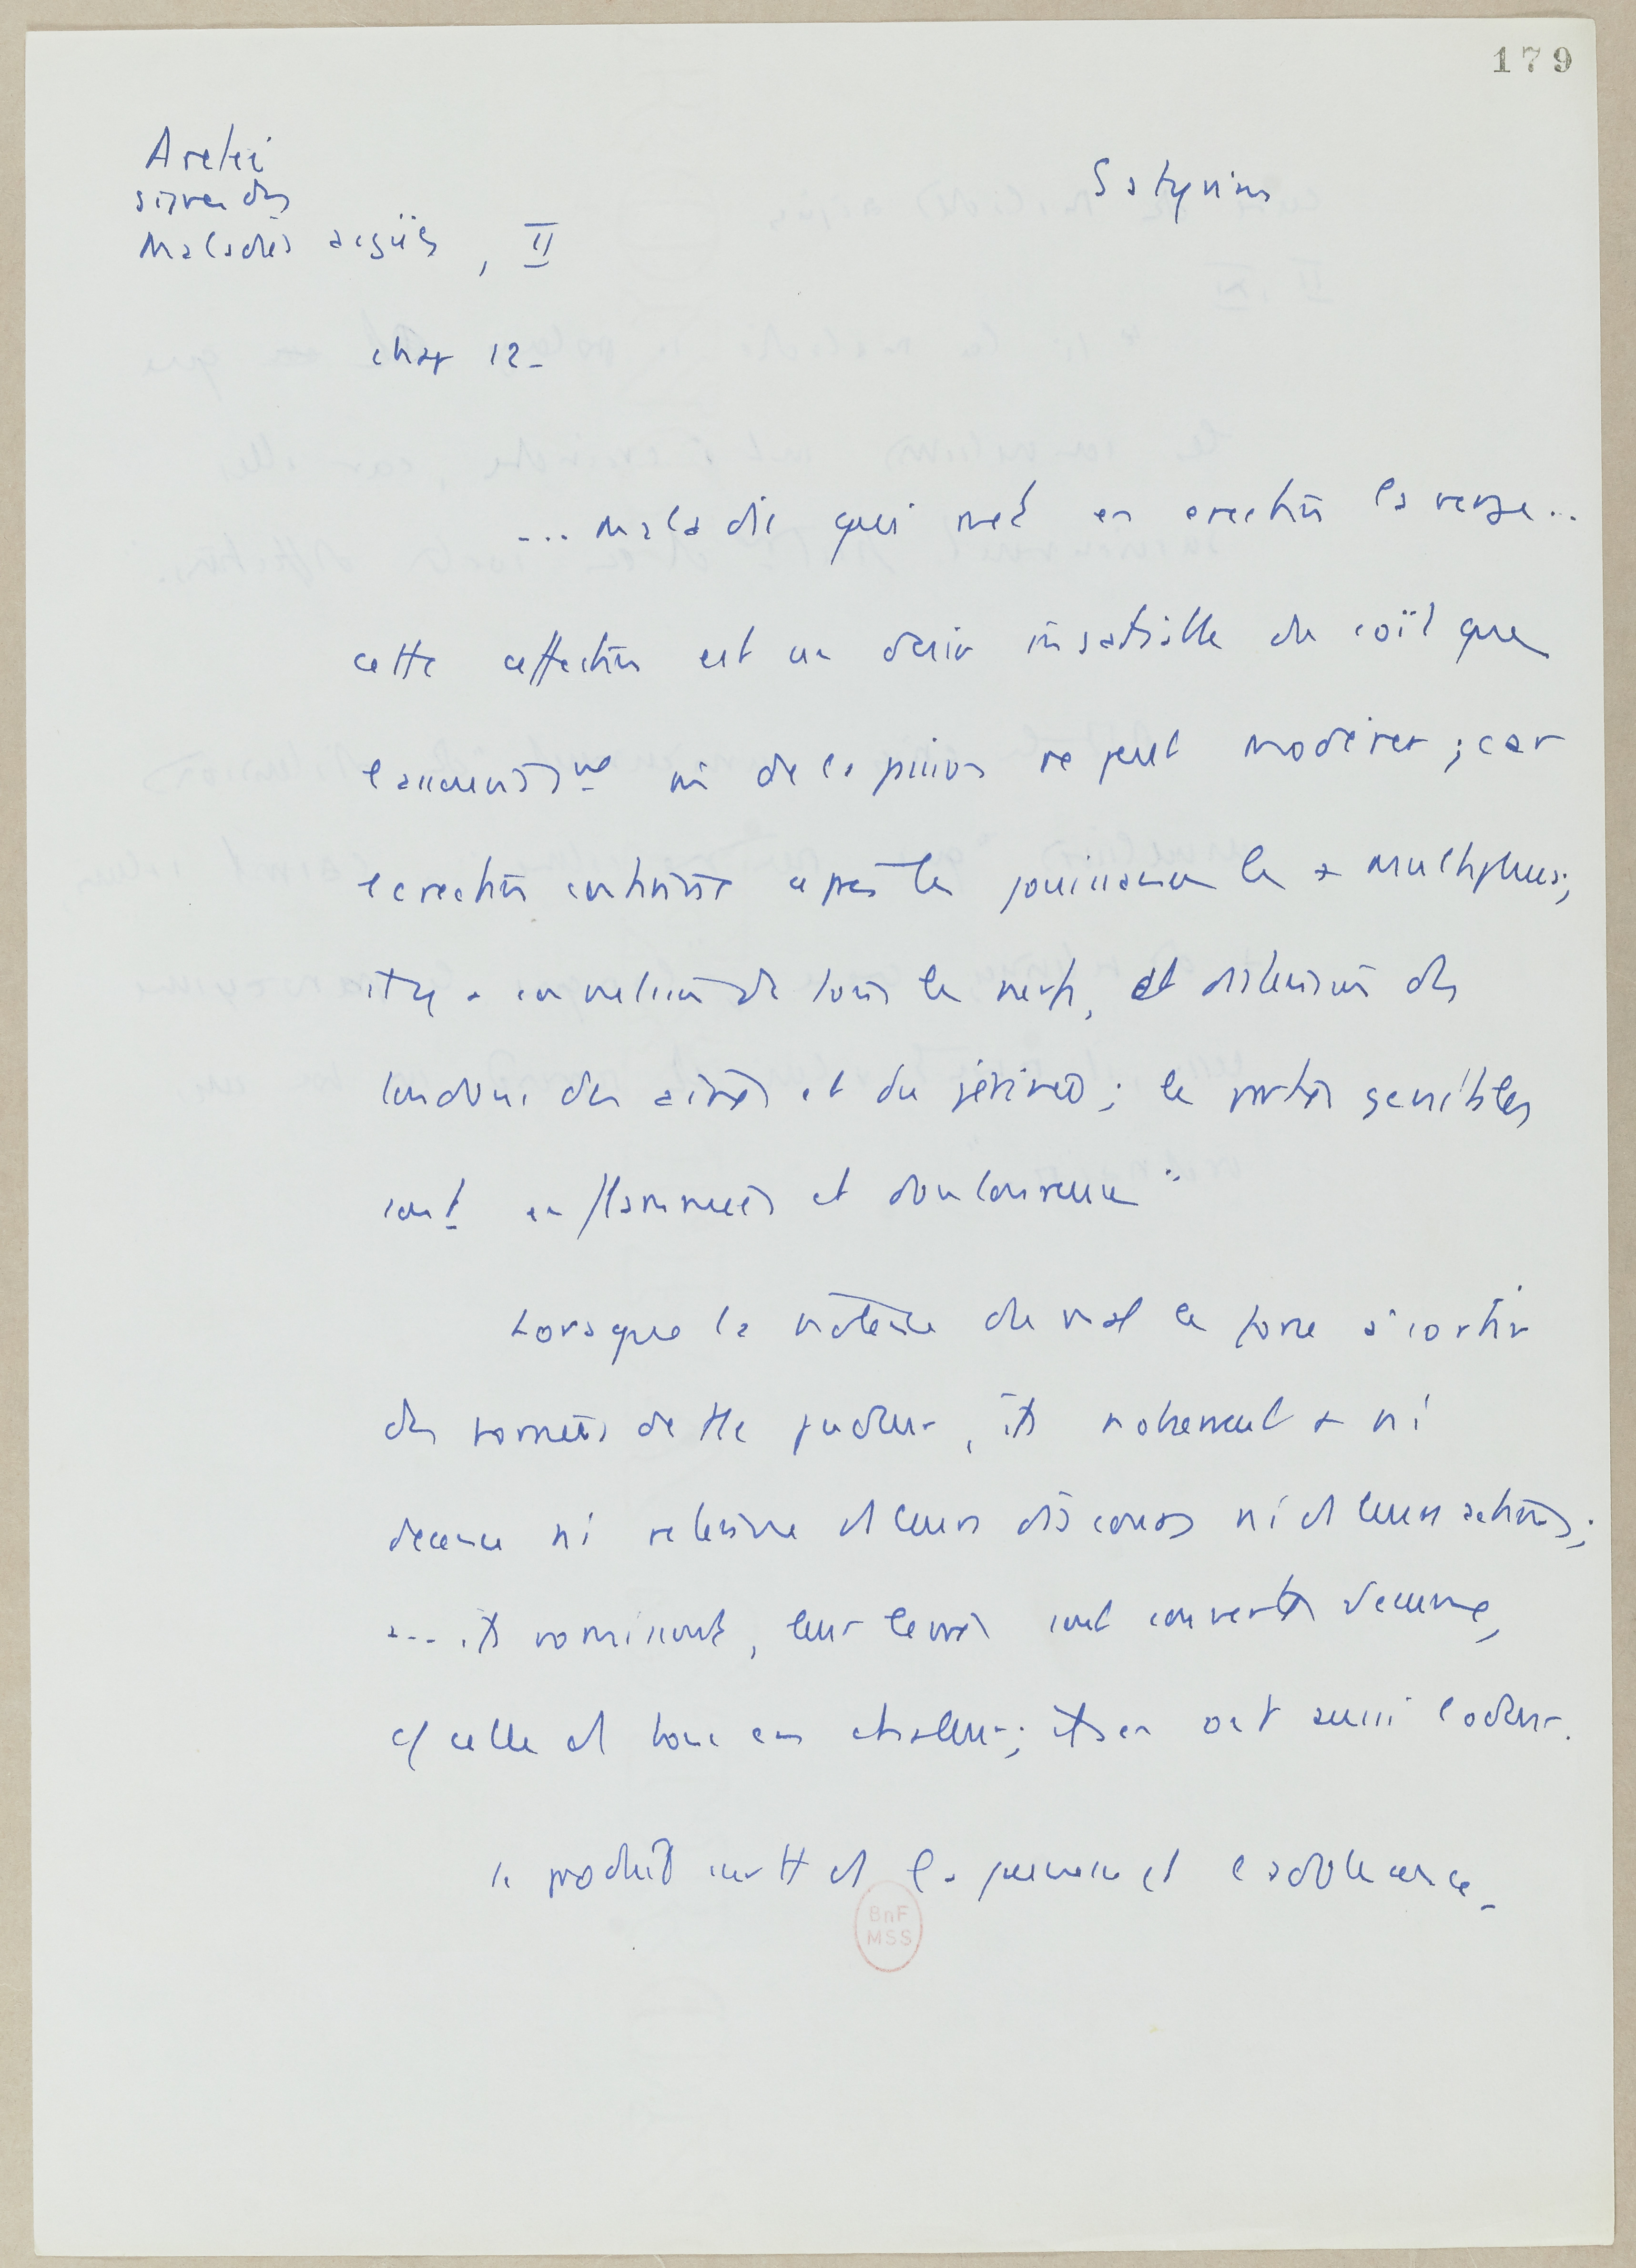 179
Arétée
signes des
Maladies aiguës, II
Satyriasis
chap 12_
... maladie qui met en érection la verge...
cette affection est un désir insatiable du coït que
ni de la passion ne peut modérer ; car
l'érection continue après les jouissances les + multipliées;
il y a convulsion de tous les nerfs, et distension des
tendons des aines et du périnée ; les parties génitales
sont enflammées et douloureuses"
Lorsque la violence du mal les force à sortir
des bornes de tte pudeur, ils n'observent + ni
décence ni retenue ds leurs discours ni ds leurs actions;
... ils vomissent, leurs lèvres sont couvertes d'écume,
cf celle ds boucs en chaleur; ils en ont aussi l'odeur.
se produit surtt ds la jeunesse et l'adolescence_
BnF
MSS